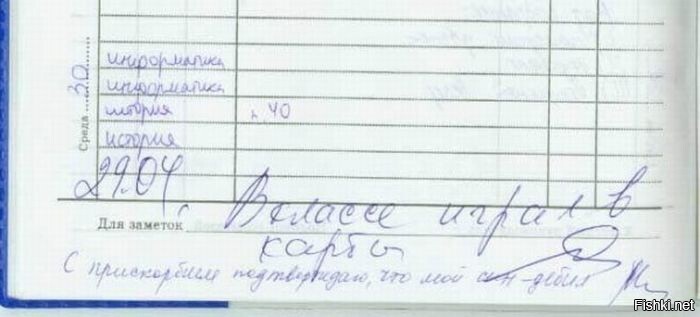 информатика
информатика
история п. 40
история
Среда 30
29.04.
Для заметок В классе играл в
карты
С прискорбием подтверждаю, что мой сын-дебил
Fishki.net